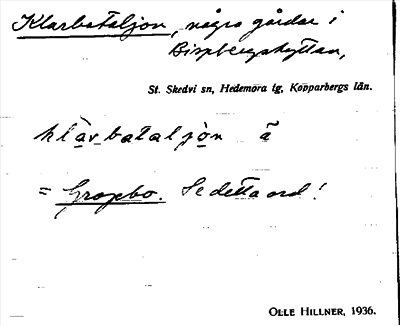 Klarbataljon, några gårdar i
Bispbergshyttan,
St. Skedvi sn, Hedemora tg, Kopparbergs län.
klàrbataljòn ã
= Gropbo. Se detta ord!
OLLE HILLNER, 1936.